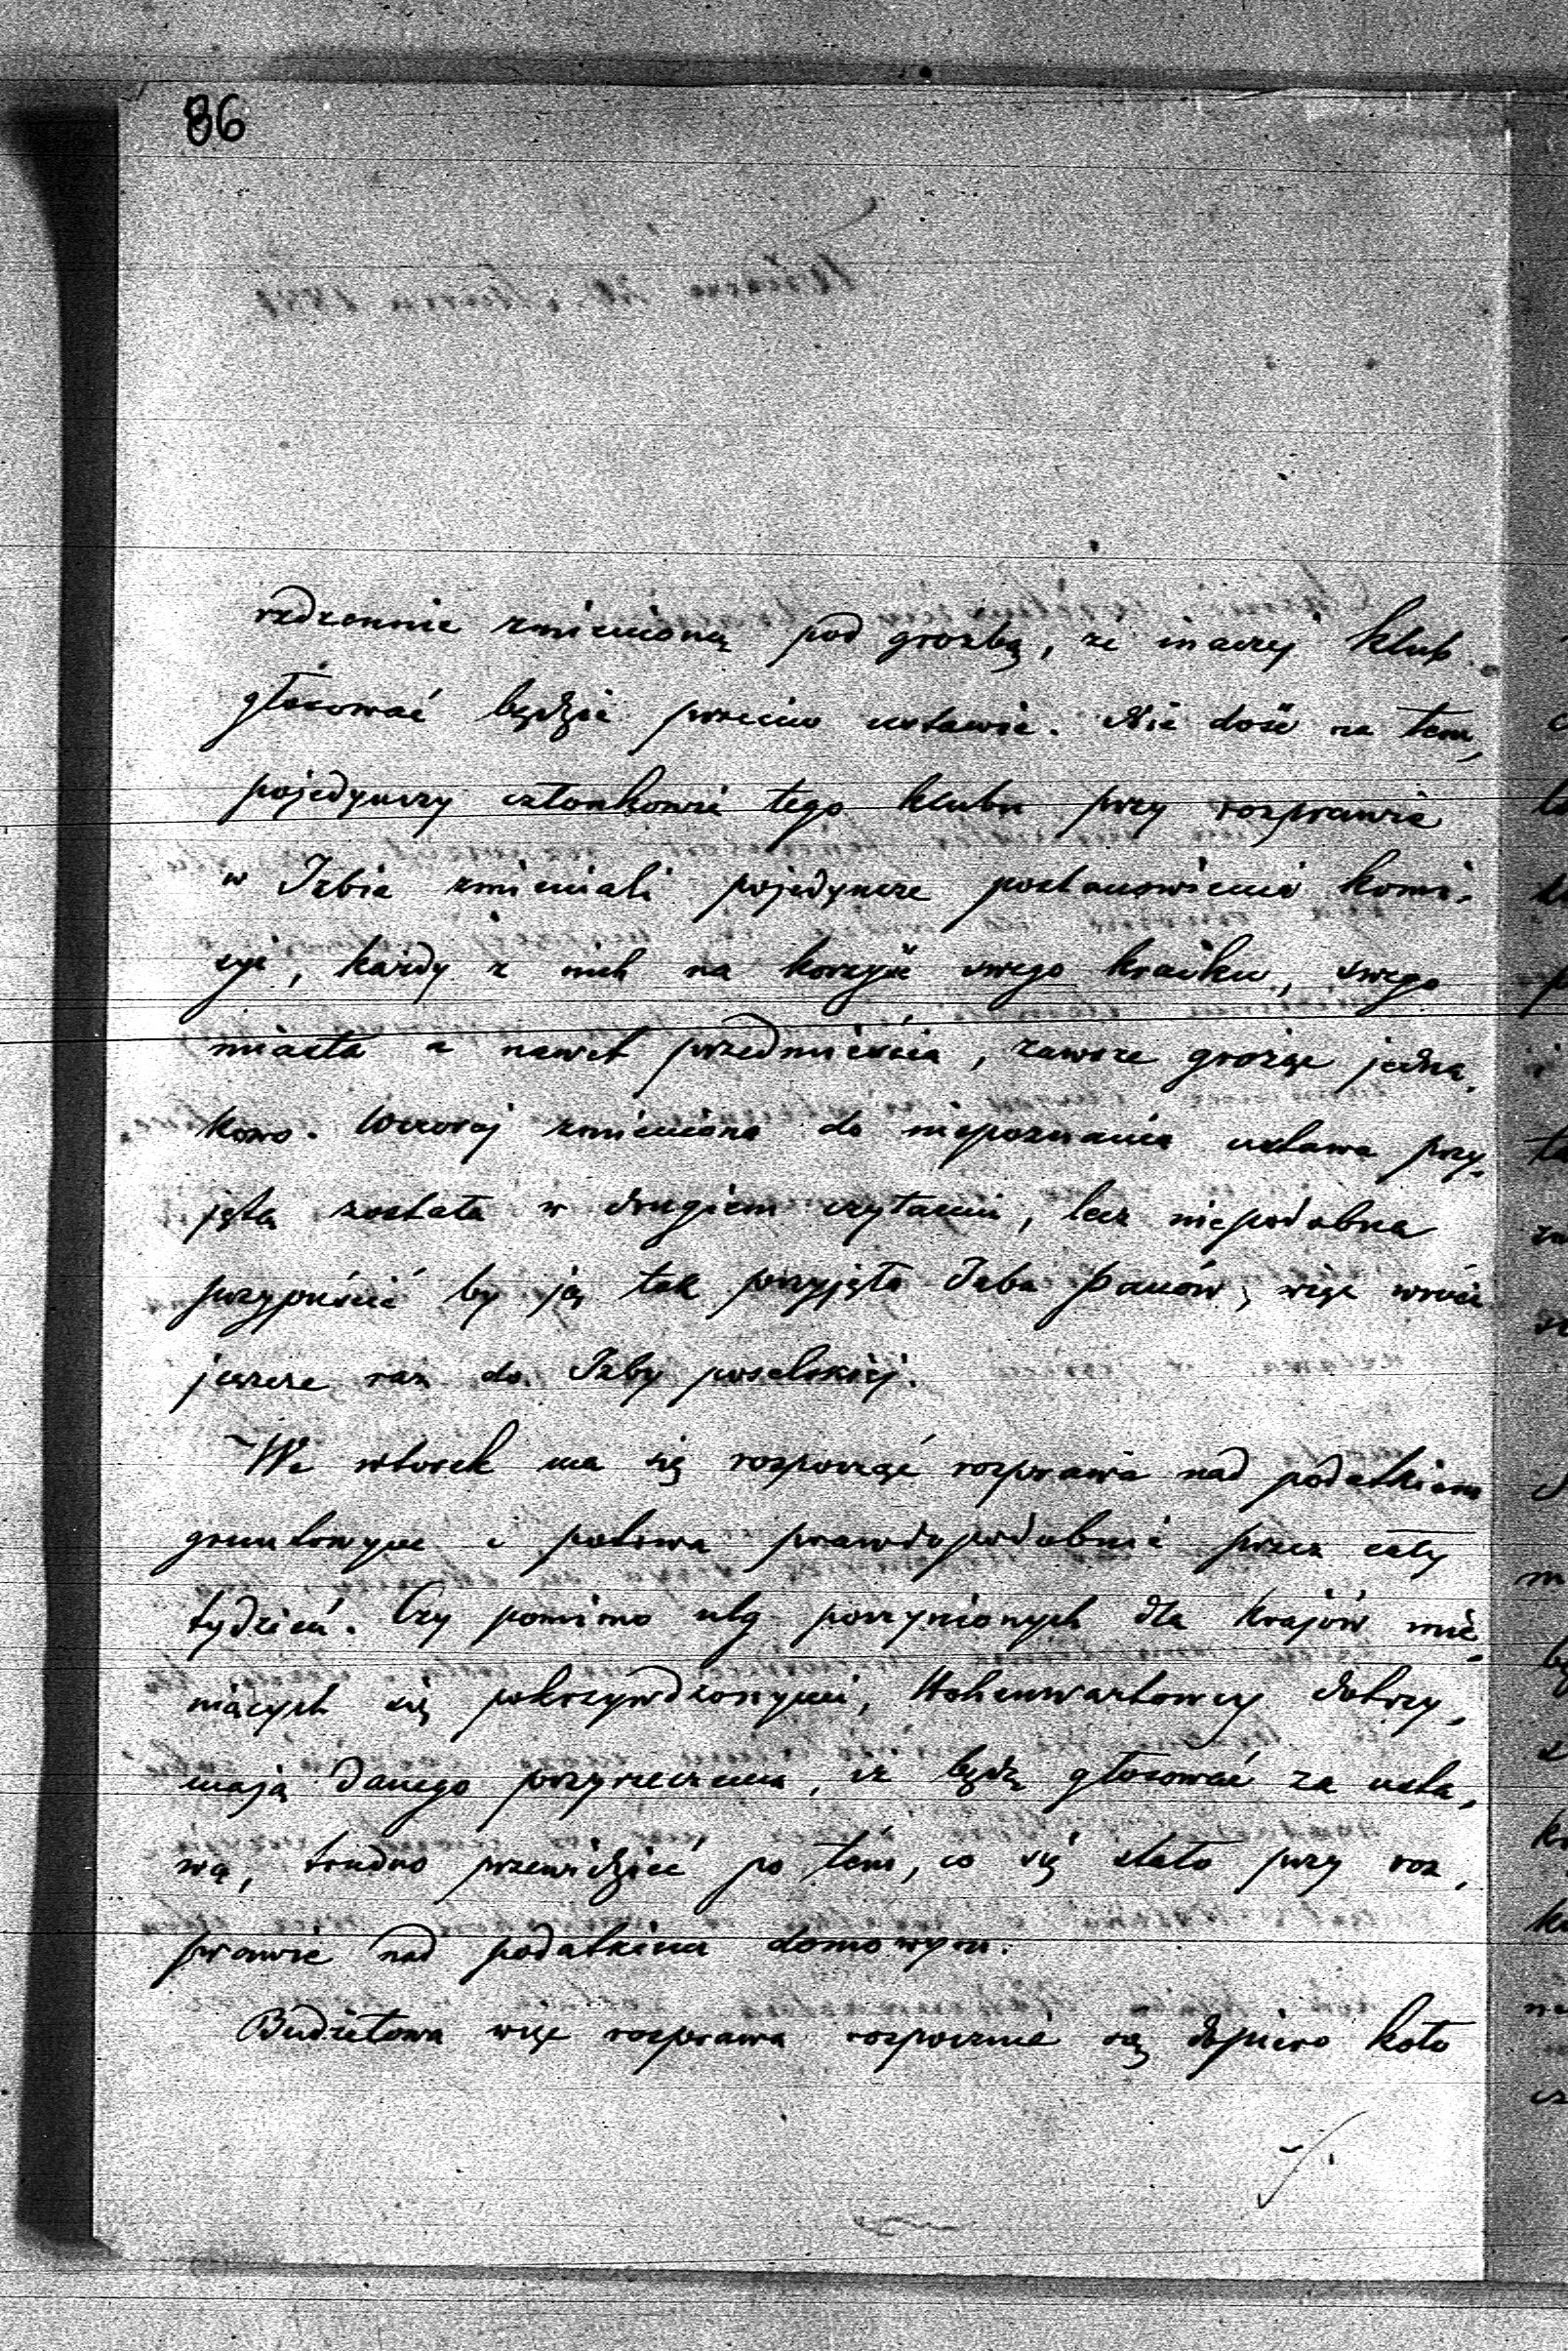 86
rzdzennie zmienioną pod grozbą, że inaczej klub
głosować będzie przeciw ustawie. Nie dość na tem,
pojedynczy członkowie tego klubu przy rozprawie
w Izbie zmieniali pojedyncze postanowienia komi-
syi, każdy z nich na korzyść swego kraiku, swego
miasta a nawet przedmieścia, zawsze grożąc jedna-
kowo. Wczoraj zmieniona do niepoznania ustawa przy-
jętą została w drugiem czytaniu, lecz niepodobna
przypuścić by ją tak przyjęła Izba Panów, więc wróci
jeszcze raz do Izby poselskiej.
We wtorek ma się rozpocząć rozprawa nad podatkiem
gruntowym i potrwa prawdopodobnie przez cały
tydzień. Czy pomimo ulg poczynionych dla krajów mie-
niących się pokrzywdzonymi, Hohenwartowcy dotrzy-
mają danego przyrzeczenia, iż będą głosować za usta-
wą, trudno przewidzieć po tem, co się stało przy roz-
prawie nad podatkiem domowym.
Budżetowa więc rozprawa rozpocznie się dopiero koło